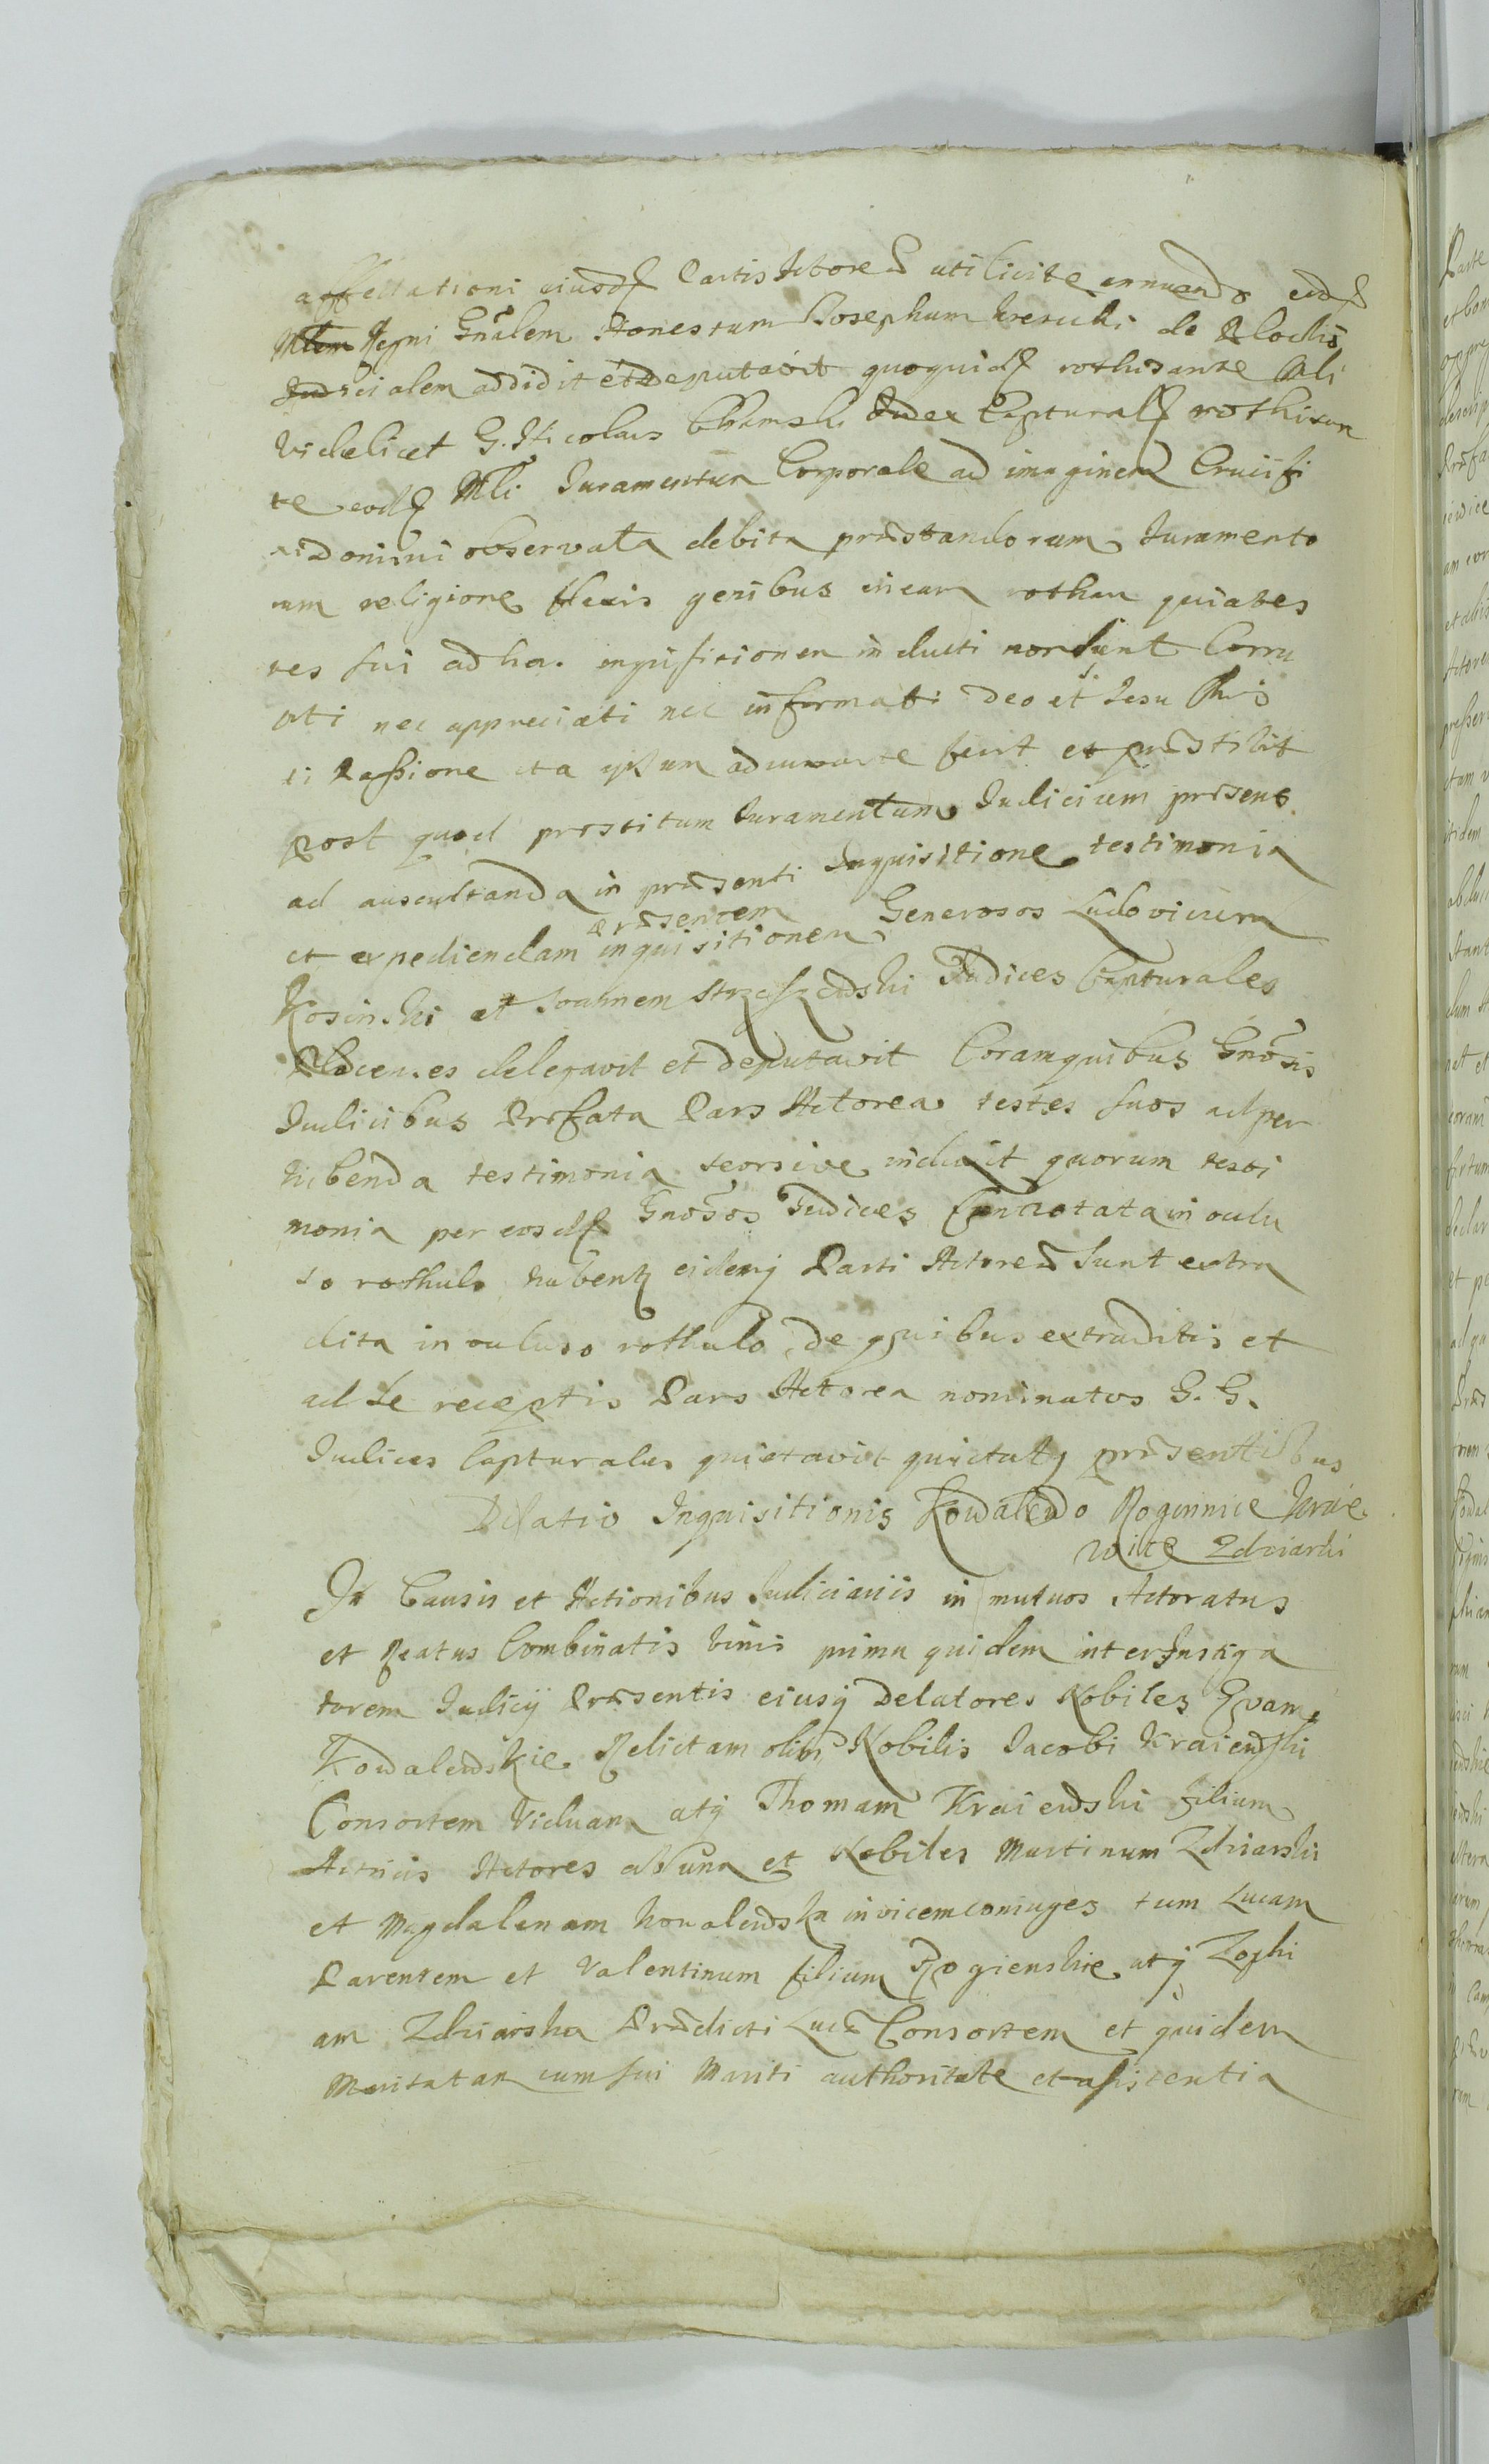 affectationi eiusdē Partis Actoreæ uti licite annuendo eidē
Mlem Regni Gnãlem Honestum Josephum de Plocko
Judicialem addidit et deputavit quoquidē rothisante Mli
videlicet G. Nicolaus Judex Capturalē rothisan
te eodē Mli Juramentum Corporale ad imaginem Crucifi
xi Domini observata debita præstandorum Juramento
rum religione flexis genibus in eam rotham quia tes
tes sui ad hac inquisitionem inducti non sunt Corru
pti nec appreciati nec informati Deo et Jesu Chris
ti Passione ita ipsum adiuvante fecit et præstitit
post quod prestitum Juramentum Judicium præsens
ad auscultanda in præsenti Inquisitione testimonia
præsentem
et expediendam inquisitionem Generosos Ludovicum
Kosinski et Joannem Judices Capturales
Plocenses delegavit et deputavit Coram quibus Gnõsis
Judicibus Præfata Pars Actorea testes suos ad per
hibenda testimonia seorsive induxit quorum testi
monia per eosdē Gnõsos Judices Connotata in oculu
so rothulo eidemq Parti Actoreæ sunt extra
dita in ocluso rothulo, de quibus extraditis et
ad se receptis Pars Actorea nominatos G. G.
Judices Capturales quietavit quietatq præsentibus
Dilatio Inquisitionis Kowalewo Rogennice Kraie
wice Zdziarski
In Causis et Actionibus Judiciariis in mutuos Actoratus
et Reatus Combinatis binis prima quidem inter Instiga
torem Judicij Præsentis eiusq Delatores Nobiles Evam
Kowalewskie Relictam olim Nobilis Jacobi Kraiewski
Consortem Viduam atq Thomam Kraiewski filium
Actricis Actores ab una et Nobiles Martinum Zdziarski
et Magdalenam Kowalewska invicem coniuges tum Lucam
Parentem et Valentinum filium Rogienskie atq Zophi
am Zdziarska Prædicti Lucæ Consortem et quidem
Maritatam cum sui Mariti authoritate et assistentia